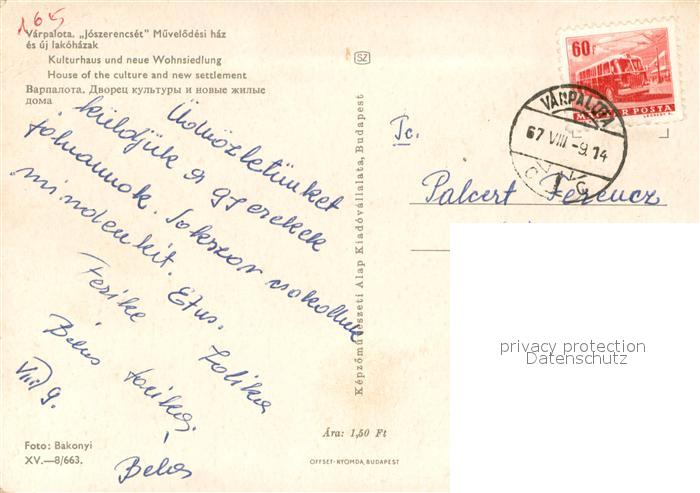 165
Várpalota. „Jószerencsét" Művelődési ház
és új lakóházak
Kulturhaus und neue Wohnsiedlung
House of the culture and new settlement
Варпалота. Дворец культуры и новые жилые
дома
SZ
60f
MAGYAR POSTA
VÁRPALOTA
67 VIII -9.14
Üdvözletünket
küldjük a gyerekek
jólvannak. Sokszor csókolunk
mindenkit. Etus. Zolika
Ferike
Béla
VIII 9.
Béla
Tc.
Palcert Ferencz
Képzőművészeti Alap Kiadóvállalata, Budapest
privacy protection
Datenschutz
Foto: Bakonyi
XV.—8/663.
Ára: 1,50 Ft
OFFSET-NYOMDA, BUDAPEST